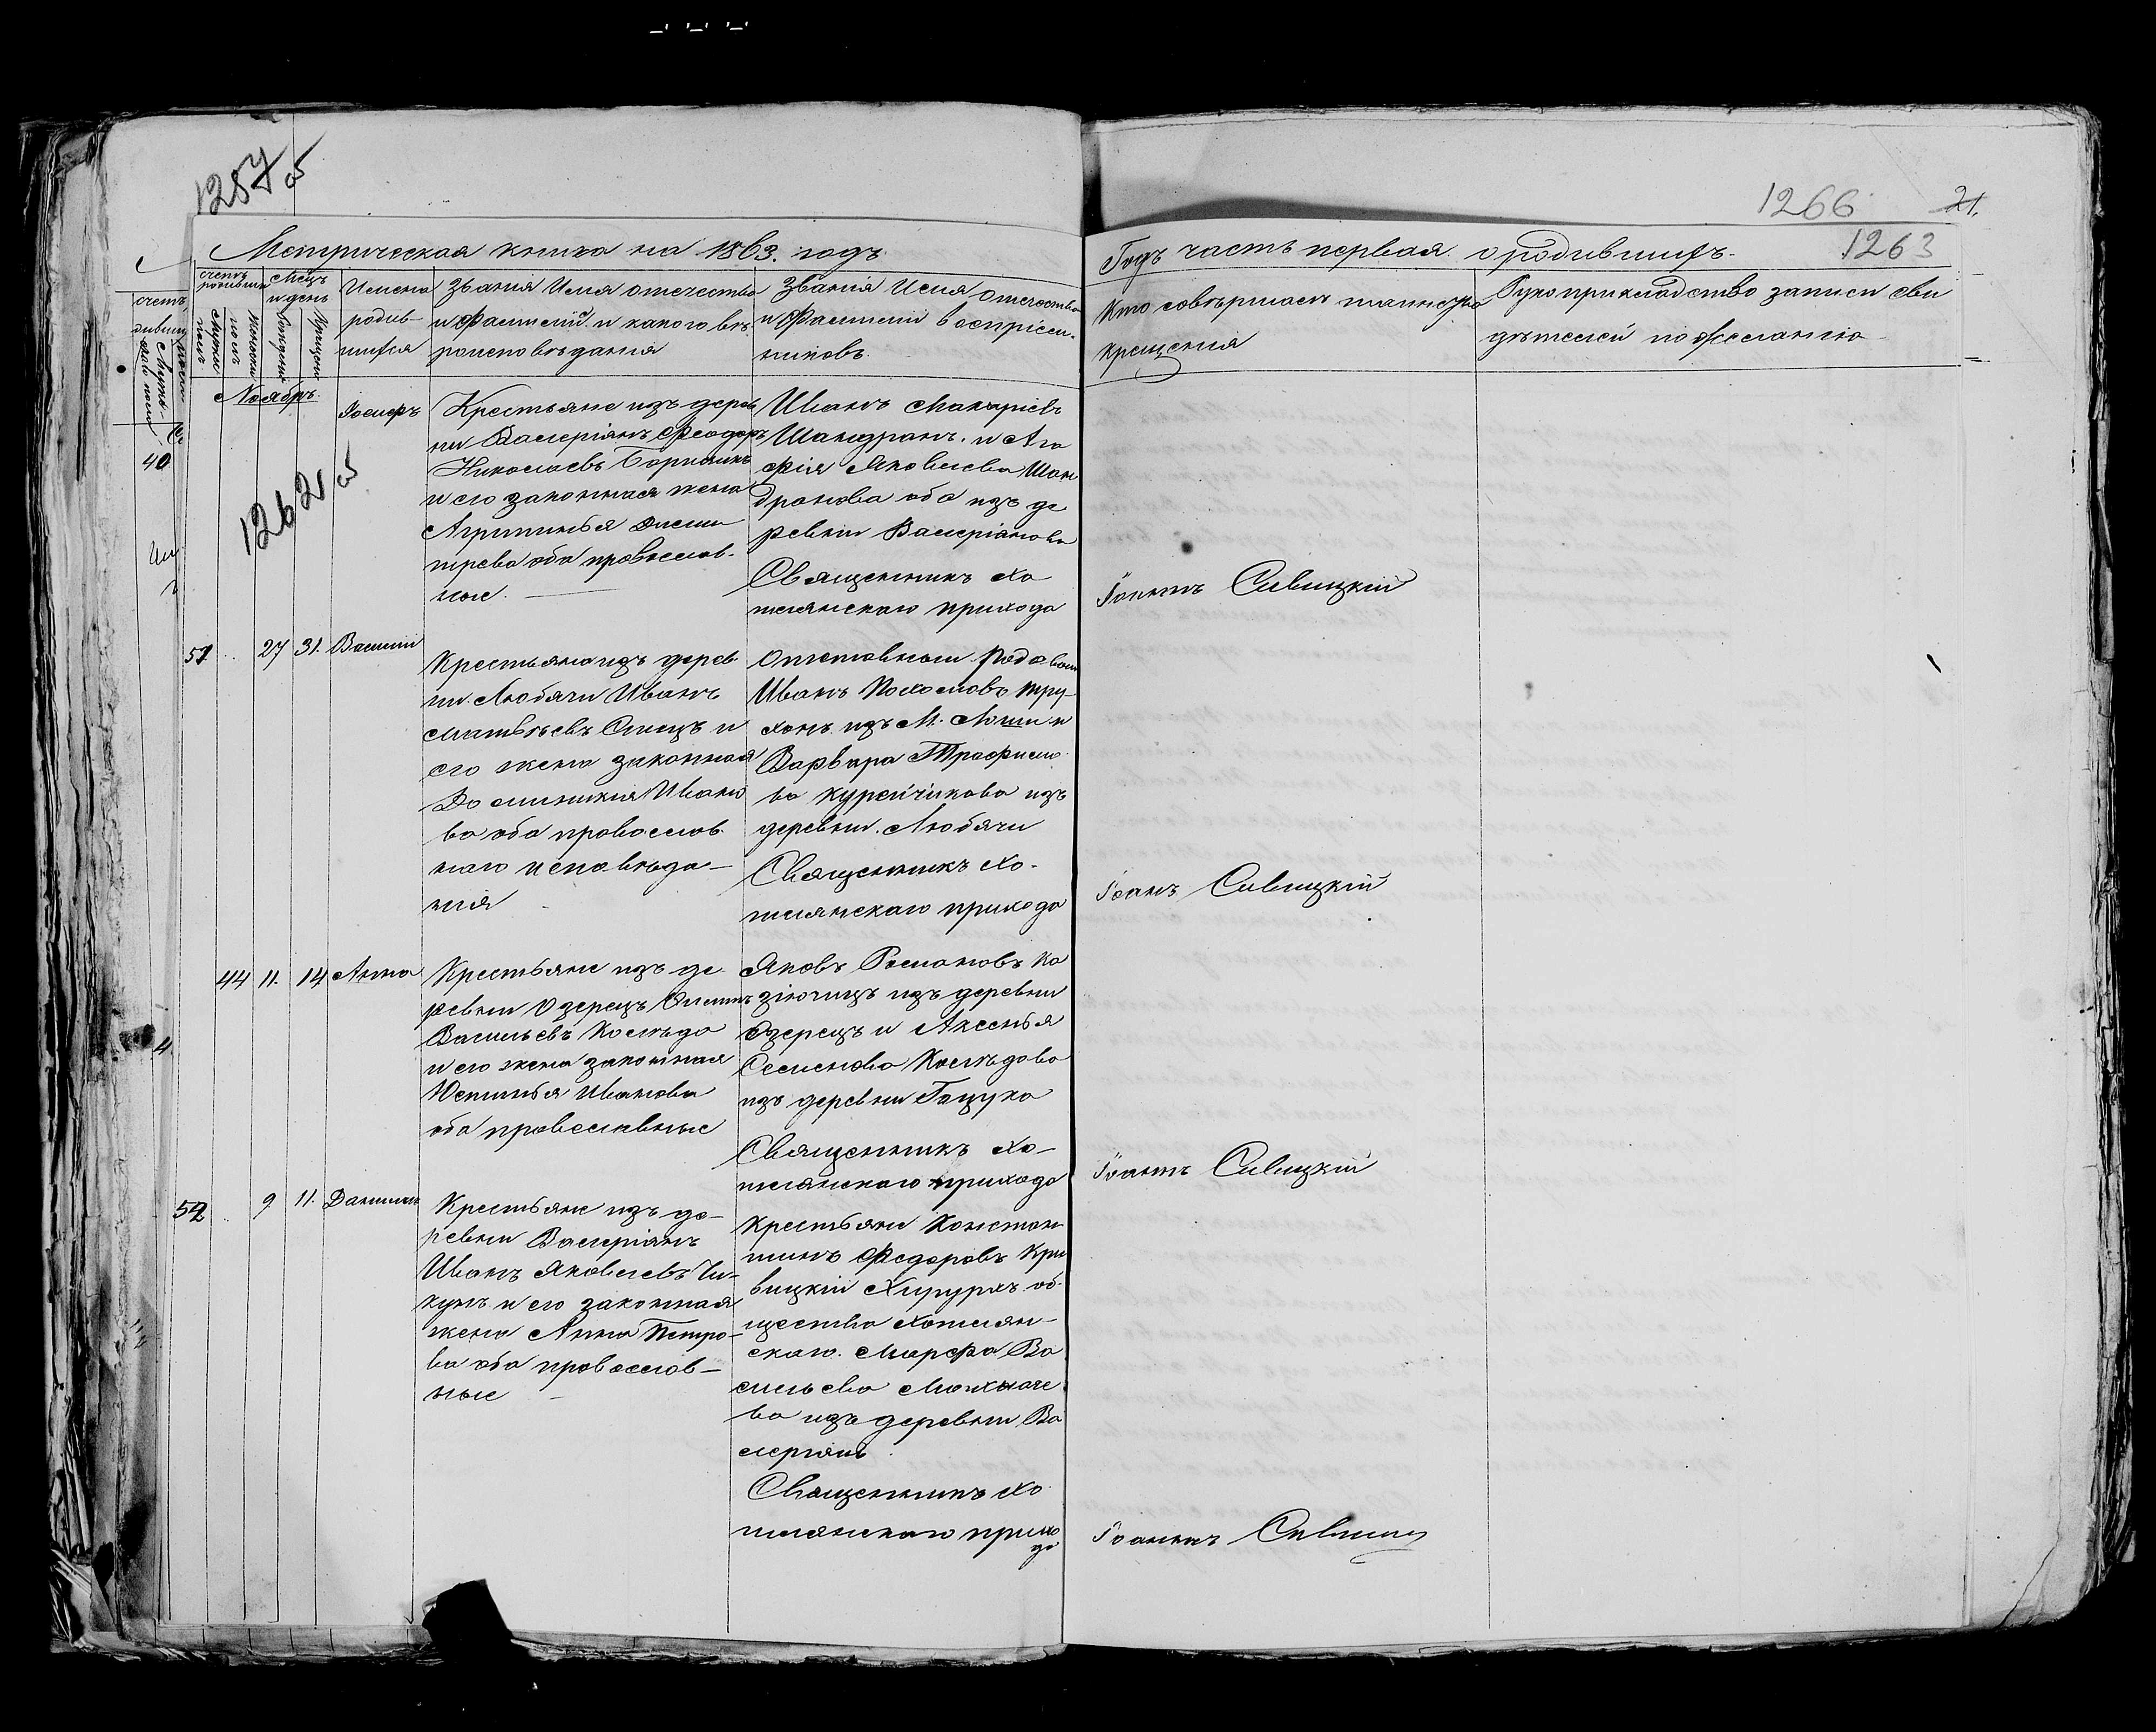 1257 об
1266 21.
1263
Метрическая книга на 1863. годъ
Годъ часть первая. о родившихъ.
Имена родив- шихся
Званія Имя отечество и Фамилій и какого въ роисповѣданія
Званія Имя отечество и Фамилій воспріем- никовъ.
Кто совѣршалъ таинство крещенія
Рукоприкладство записи сви дѣтелей по желанію
Ноябрь
40
1262 об
Іосифъ
Крестьяне изъ дерев
ни Валеріянъ Феодоръ
Николаевъ
и его законная жена
Агрипинья Дими
трева оба православ-
ные.
Иванъ Макаріевъ
Шандранъ. и Ага
фія Яковлева Шан
дранова оба изъ де
ревни Валеріянова
Священникъ Хо
тлянскаго прихода
Іоаннъ Савицкій
51 27 31. Василій
Крестьяна изъ дерев.
ни Любячи Иванъ
Матвѣевъ Спицъ и
его жена законная
Доминикія Ивано
ва оба православ
наго исповѣда-
нія
Отставный рядовый
Иванъ Пахомовъ Тру-
ханъ изъ М. и
Варвара Трафимо
ва Курейчикова изъ
деревни. Любячи
Священникъ Хо-
тлянскаго прихода
Іоанъ Савицкій
44 11. 14 Анна
Крестьяне изъ де
ревни Озерецъ
ВасильевъКолѣда
и его жена законная
Юстинья Иванова
оба православные
Яковъ Романовъ Ка
зючицъ изъ деревни
Озерецъ и Аксенья
Семенова Колѣдова
изъ деревни Гацука
Священникъ Хо-
тлянскаго прихода
Іоаннъ Савицкій
4
52 9 11. Даніилъ
Крестьяне изъ де-
ревни Валеріянъ
Иванъ Яковлевъ Чи-
кунъ и его законная
жена Анна Петро-
ва оба православ-
ные
Крестьяни Констан
тинъ Федоровъ Кри
вицкій Хирургъ об-
щества Хотлян-
скаго. Марфа Ва
сильева
ва изъ деревни Ва
леріянъ
Священникъ Хо
тлянскаго прихо
да
Іоаннъ Савицкій